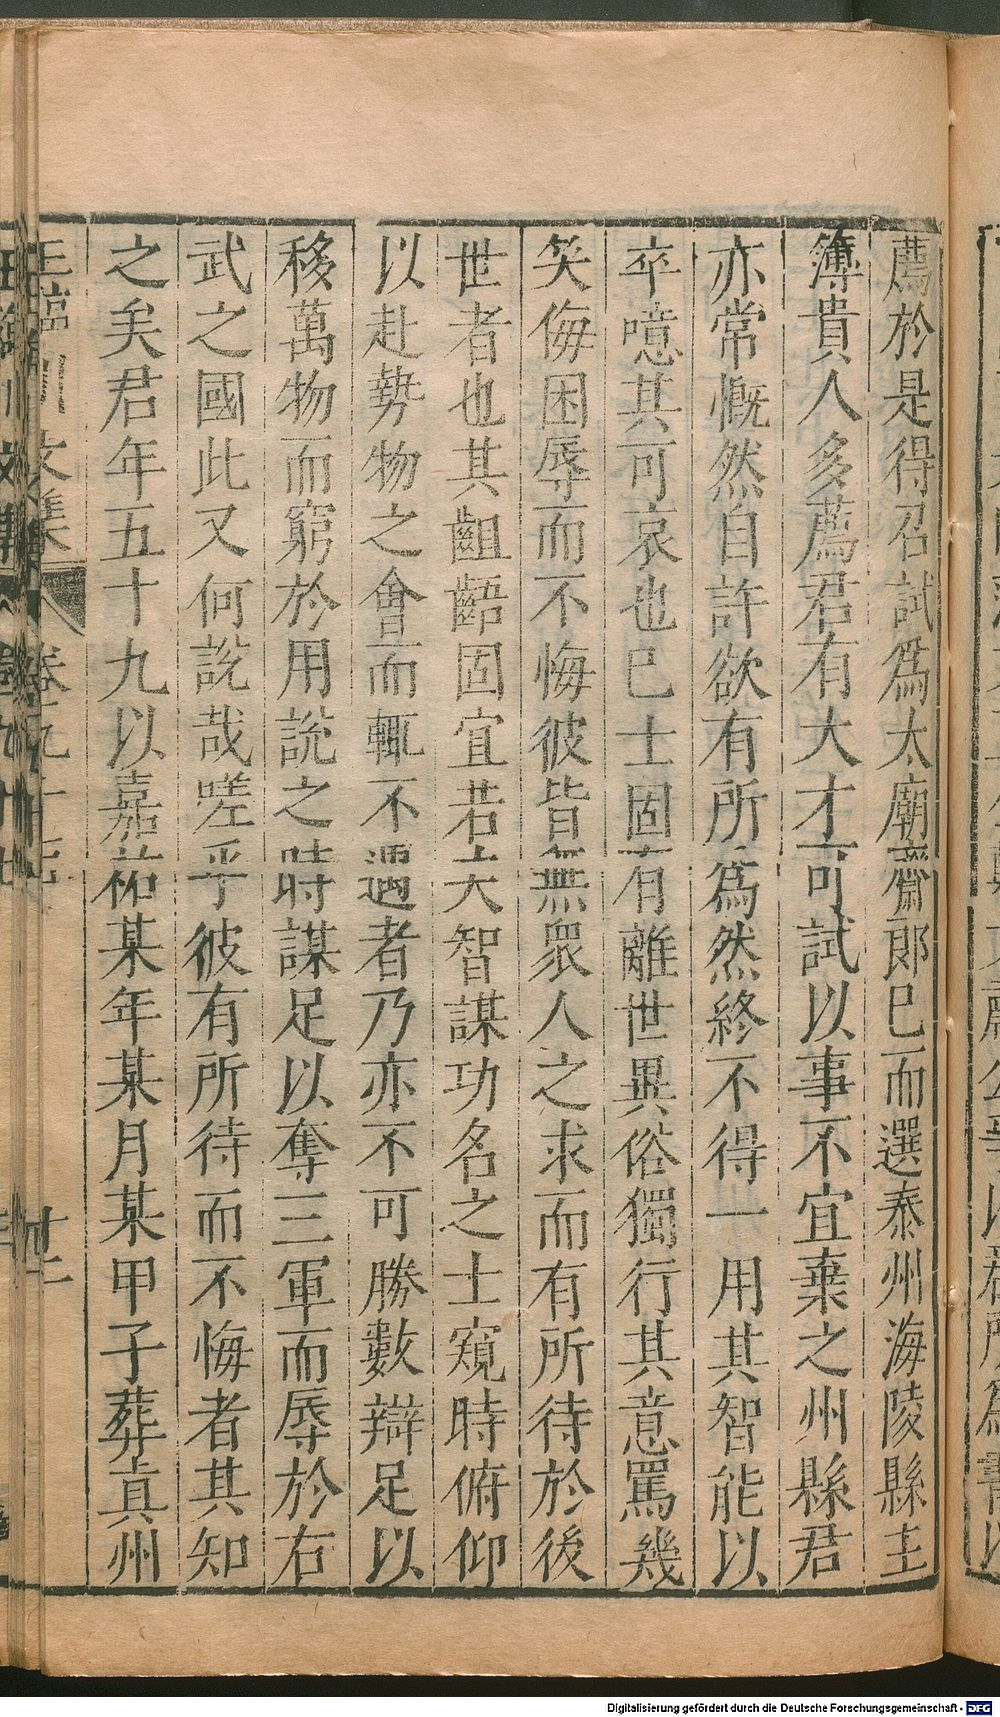 薦於是得召試爲太廟齋郎已而選泰州海陵縣主
簿貴人多薦君有大才可試以事不宜棄之州縣君
亦常慨然自許欲有所爲然終不得一用其智能以
卒噫其可哀也巳士固有離世異俗獨行其意罵幾
笑侮困辱而不悔彼皆無衆人之求而有所待於後
世者也其齟齬固宜若夫智謀功名之士窺時俯仰
以赴勢物之會而輒不遇者乃亦不可勝數辯足以
移萬物而窮於用說之時謀足以奪三軍而辱於右
武之國此又何說哉嗟乎彼有所待而不悔者其知
之矣君年五十九以嘉祐某年某月某甲子葬真州
王臨川文集 卷九十五 廿二
Digitalisierung gefördert durch die Deutsche Forschungsgemeinschaft - DFG